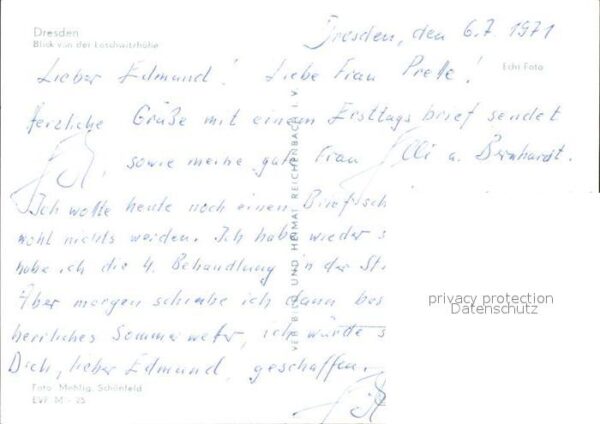 Dresden
Blick von der Loschwitzhöhe
Dresden, den 6.7.1971
Echt Foto
Lieber Edmund! Liebe Frau Prelle!
Herzliche Grüße mit einem Ersttagsbrief sendet
, sowie meine gute Frau Elli u. Bernhardt.
Ich wollte heute noch einen Brief sch
wohl nichts werden. Ich habe wieder s
habe ich die 4. Behandlung in der St.
Aber morgen schreibe ich dann bes
herrliches Sommerwetter, ich würde s
Dich, lieber Edmund, geschaffen.
VERLAG BILD UND HEIMAT REICHENBACH I. V.
privacy protection
Datenschutz
Foto: Mehlig, Schönfeld